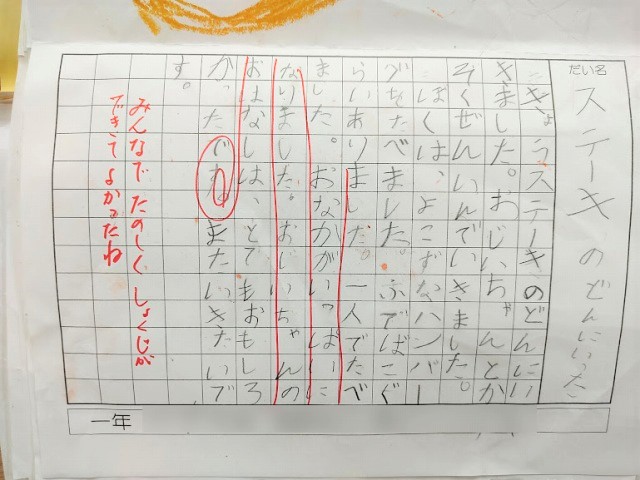 だい名
ステーキのどんにいった
きょうステーキのどんにい
きました。おじいちゃんとか
ぞくぜんいんでいきました。
ぼくは、よこずなハンバー
グをたべました。ふでばこぐ
らいありました。一人でたべ
ました。おなかがいっぱいに
なりました。おじいちゃんの
おはなしは、とてもおもしろ
かったです。またいきたいで
す。
みんなでたのしくしょくじが
できてよかったね
一年